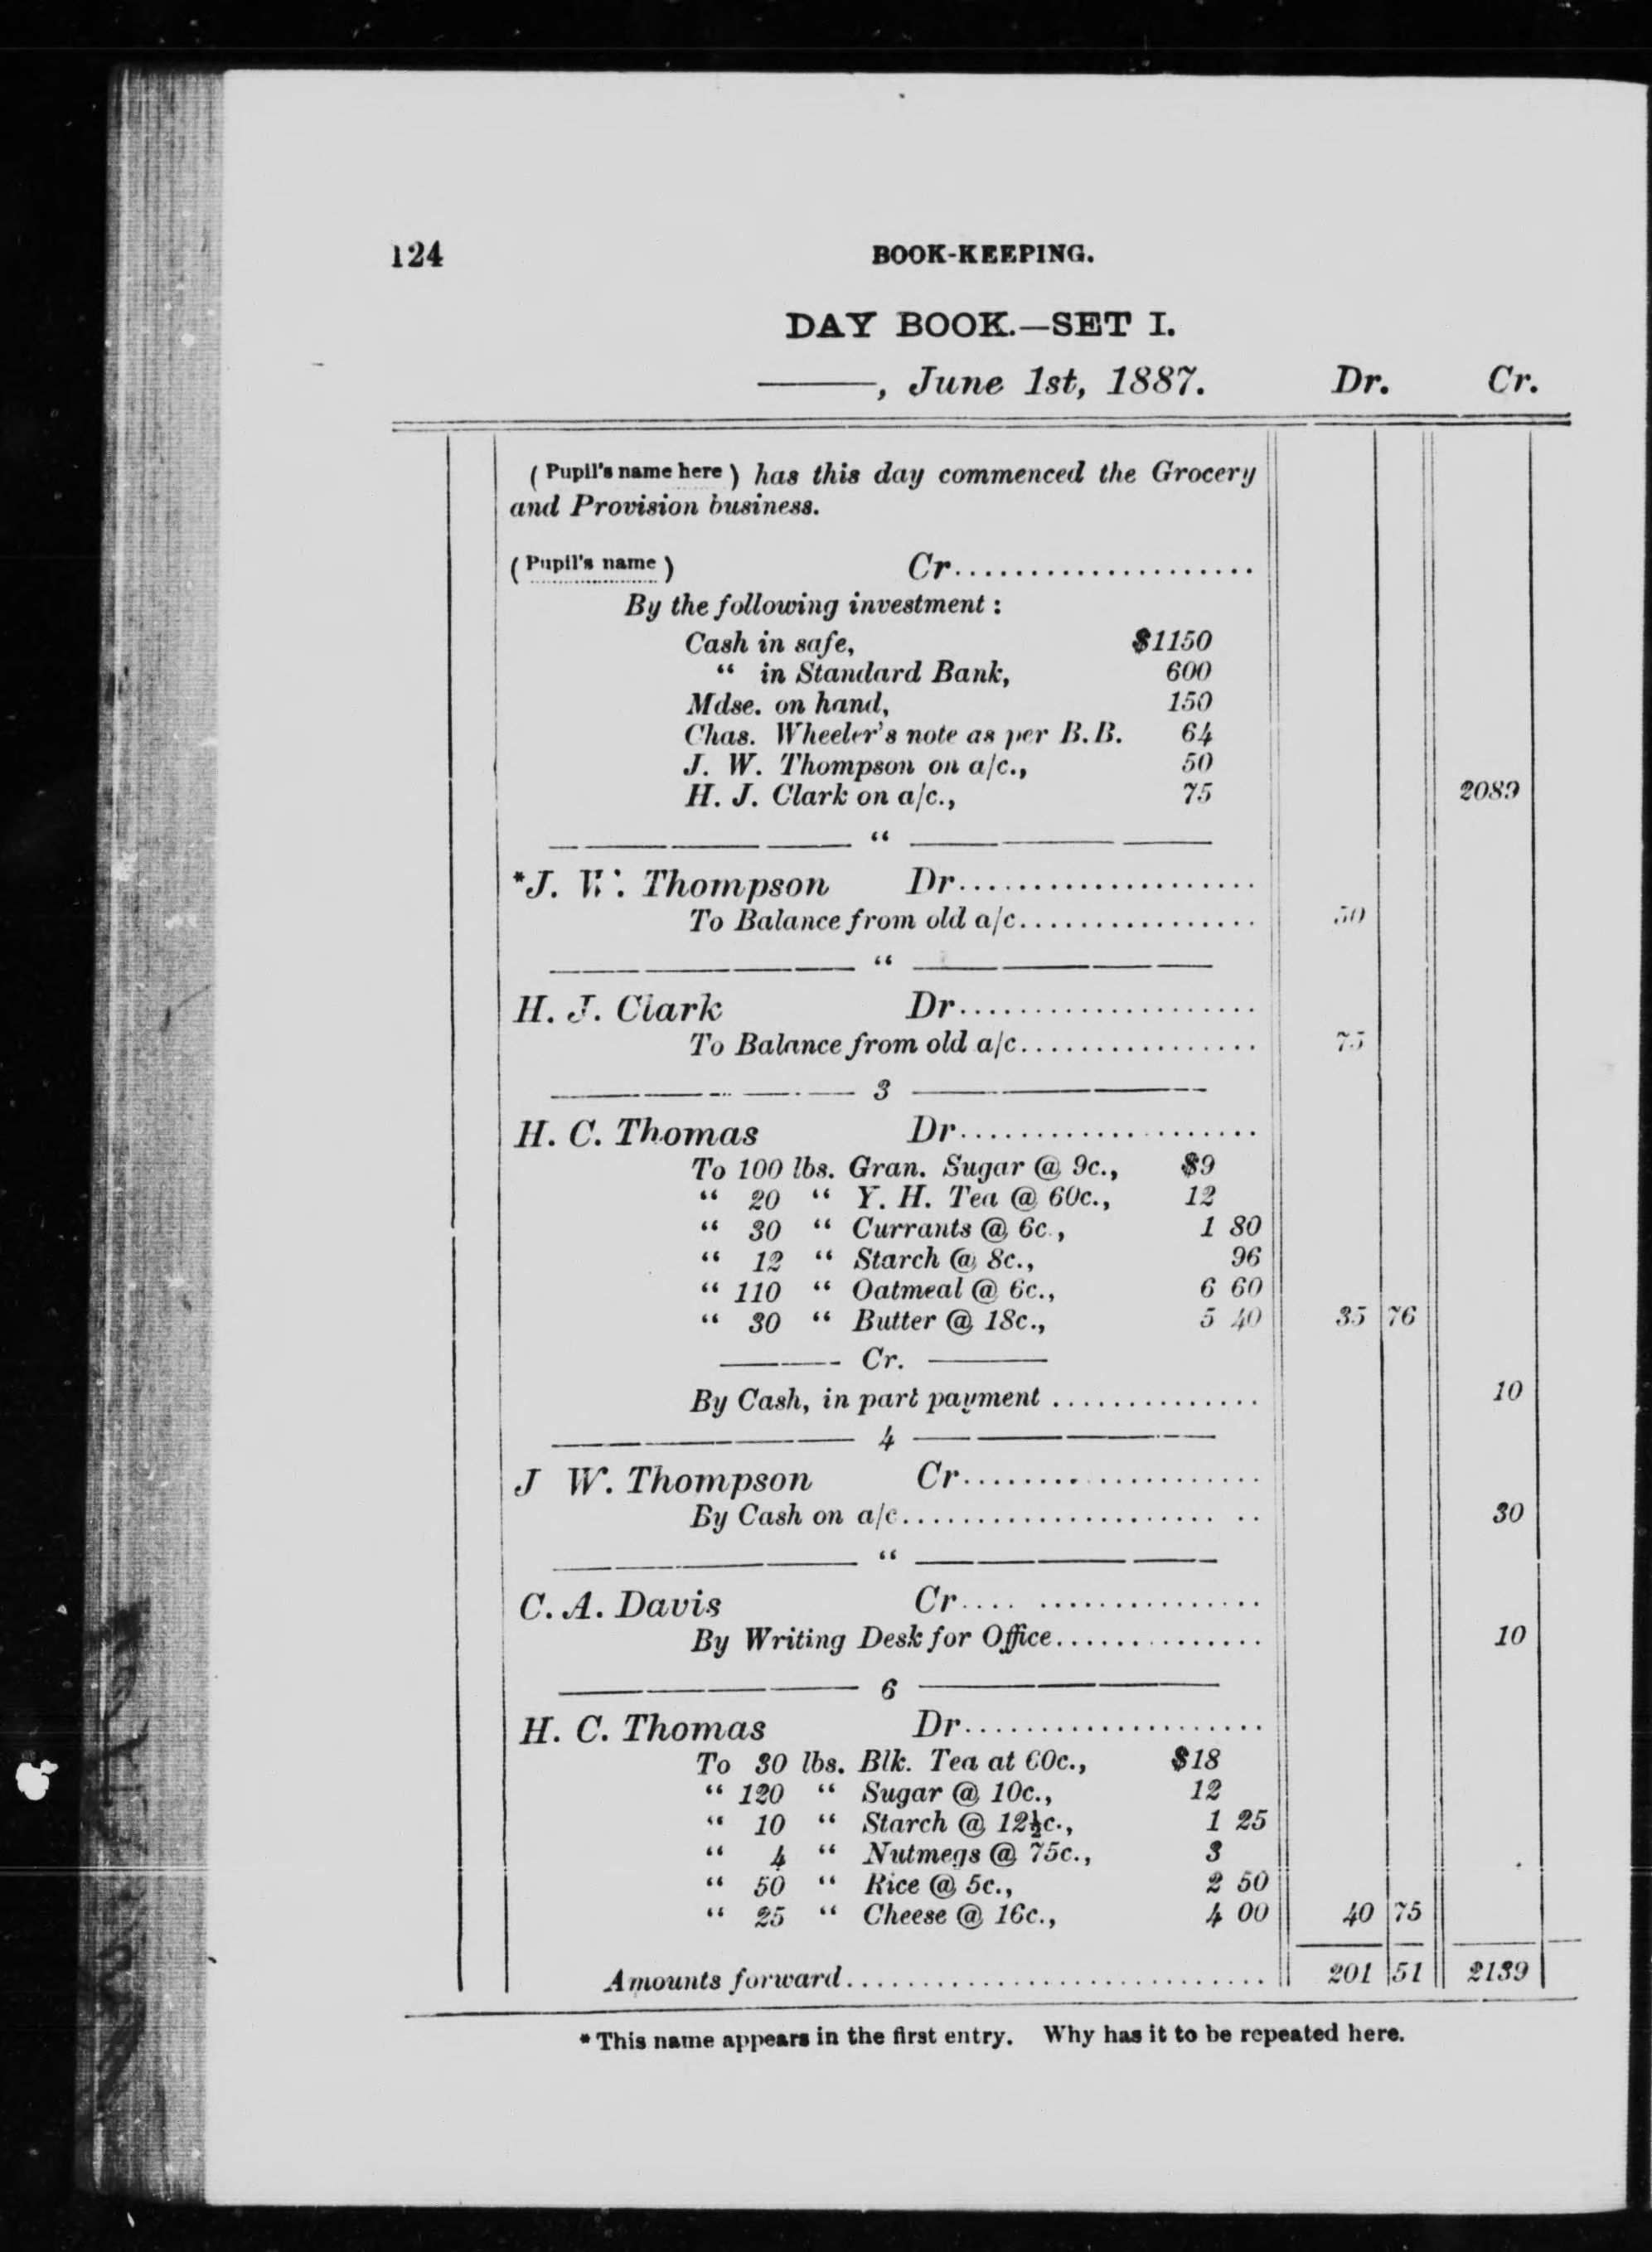 124 BOOK-KEEPING.
DAY BOOK.—SET I.
———, June 1st, 1887. Dr. Cr.
( Pupil's name here ) has this day commenced the Grocery
and Provision business.
( Pupil's name ) Cr....................
By the following investment :
Cash in safe, $1150
“ in Standard Bank, 600
Mdse. on hand, 150
Chas. Wheeler's note as per B.B. 64
J. W. Thompson on a/c., 50
H. J. Clark on a/c., 75 2089
“
*J. W. Thompson Dr....................
To Balance from old a/c................ 50
“
H. J. Clark Dr....................
To Balance from old a/c................ 75
3
H. C. Thomas Dr....................
To 100 lbs. Gran. Sugar @ 9c., $9
“ 20 “ Y. H. Tea @ 60c., 12
“ 30 “ Currants @ 6c., 1 80
“ 12 “ Starch @ 8c., 96
“ 110 “ Oatmeal @ 6c., 6 60
“ 30 “ Butter @ 18c., 5 40 35 76
——— Cr. ———
By Cash, in part payment .............. 10
4
J W. Thompson Cr....................
By Cash on a/c........................ 30
“
C. A. Davis Cr....................
By Writing Desk for Office.............. 10
6
H. C. Thomas Dr....................
To 30 lbs. Blk. Tea at 60c., $18
“ 120 “ Sugar @ 10c., 12
“ 10 “ Starch @ 12½c., 1 25
“ 4 “ Nutmegs @ 75c., 3
“ 50 “ Rice @ 5c., 2 50
“ 25 “ Cheese @ 16c., 4 00 40 75
Amounts forward............................ 201 51 2139
* This name appears in the first entry. Why has it to be repeated here.